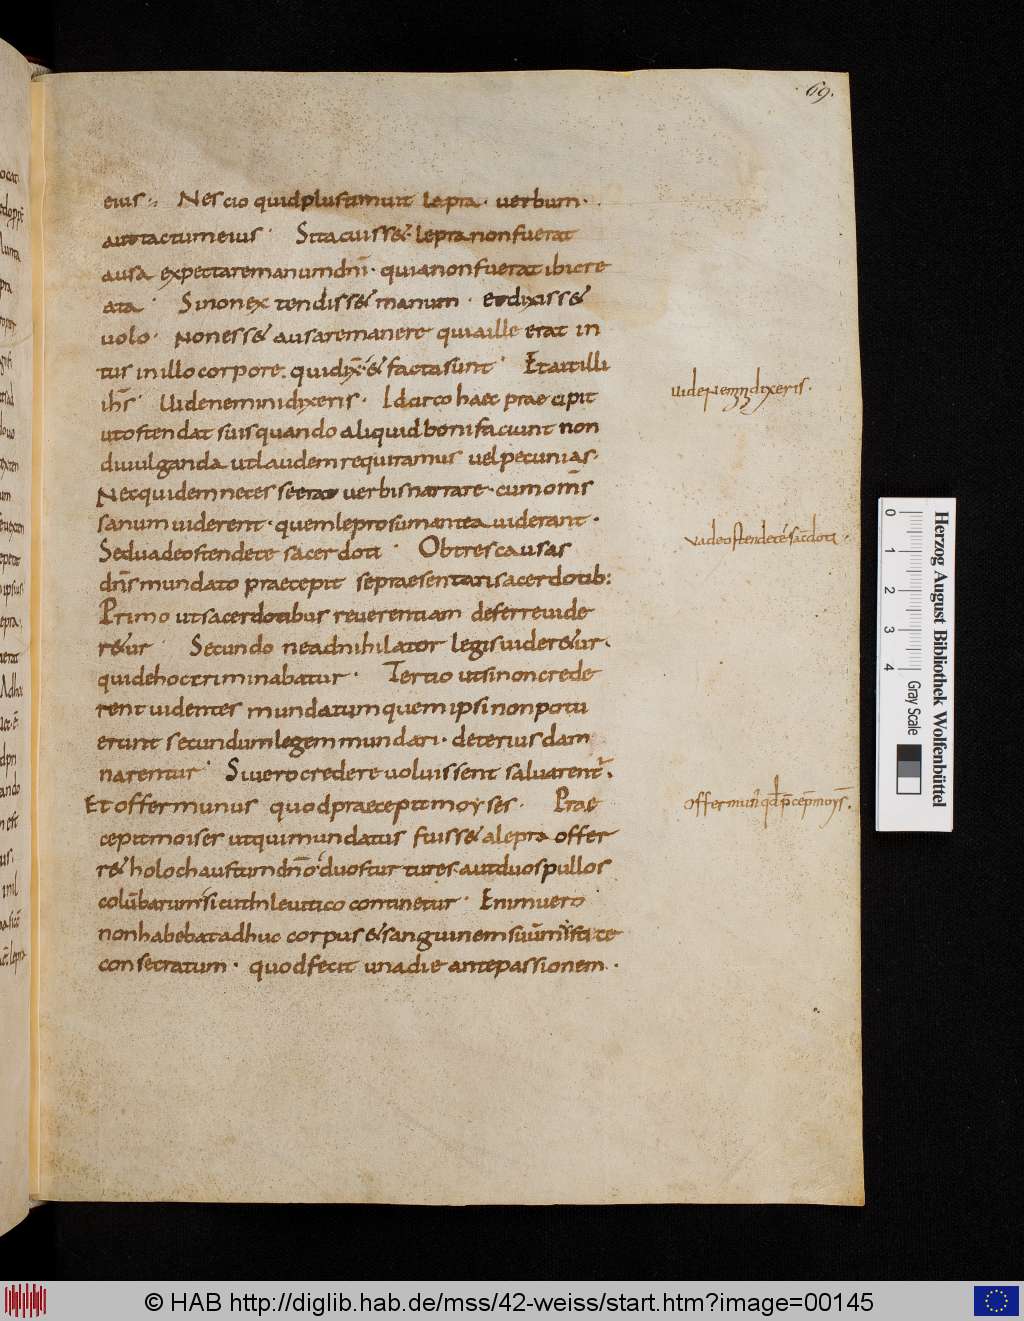 69.
eius·, Nescio quid plus timuit lepra· uerbum·
aut tactum eius· Si tacuiss&· lepra non fuerat
ausa expectare manum dnī· quia non fuerat ibi cre
ata· Si non extendiss& manum· et dixiss&
uolo· non ess& ausa remanere quia ille erat in
tus in illo corpore. qui dix̄·& facta sunt· Et ait illi
ih̄s· Uide nemini dixeris· Idcirco haec praecipit
ut ostendat suis quando aliquid boni faciunt non
diuulganda ut laudem requiramus uel pecunias·
Nec quidem necesse erat uerbis narrare· cum om̄s
sanum uiderent· quem leprosum antea uiderant·
Sed uade ostende te sacerdoti· Ob tres causas
dn̄s mundato praecepit se praesentari sacerdotib:
Primo ut sacerdotibus reuerentiam deferre uide
r&ur Secundo ne adnihilator legis uider&ur·
qui de hoc criminabatur· Tertio ut si non crede
rent uidentes mundatum quem ipsi non potu
erunt secundum legem mundari· deterius dam
narentur· Si uero credere uoluissent saluarent̄·
Et offer munus quod praecepit moyses· Prae
cepit moises ut qui mundatus fuiss& a lepra offer
r& holochaustum dn̄o· duos turtures· aut duos pullos
colūbarum· sicut in leuitico continetur· Enim uero
non habebat adhuc corpus & sanguinem suūm
consecratum· quod fecit una die ante passionem·
Uide nemini dixeris·
Vade ostende te sac̄doti·
offer mun̄ qd̄ p̄cep̄ moys̄·
Herzog August Bibliothek Wolfenbüttel
0 1 2 3 4
Gray Scale
© HAB http://diglib.hab.de/mss/42-weiss/start.htm?image=00145